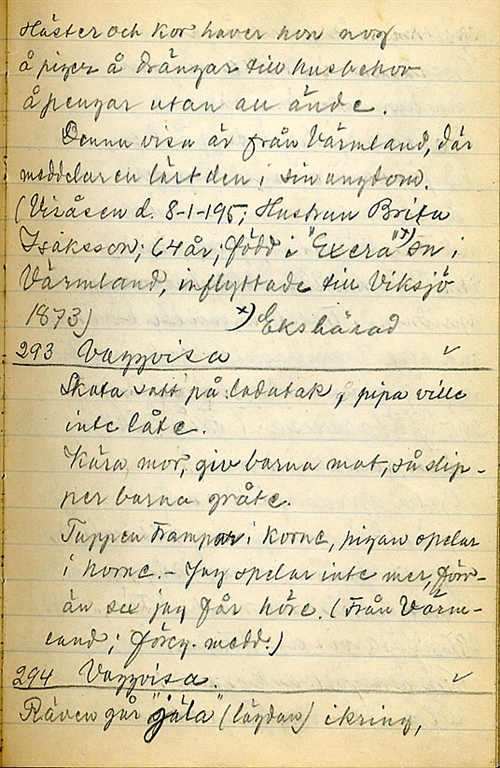 Häster och kor haver hon nog
å piger å drängar till husbehov
å pengar utan an ände.
Denna visa är från Värmland, där
meddelaren lärt den i sin ungdom.
(Visåsen d. 8-1-195; Hustrun Brita
Isaksson; 64 år; född i "Excra" x) sn i
Värmland, inflyttade till Viksjö
1873) x) Ekshärad
293 Vaggvisa ✓
Skata satt på ladutak, pipa ville
inte låte.
Kära mor, giv barna mat, så slip-
per barna gråte.
Tuppen trampar i korne, pigan spelar
i horne. - Jag spelar inte mer, förr-
än jag får höre. (Från Värm-
land; föreg. medd.)
294 Vaggvisa. ✓
Räven går "gäla" (lägdan) ikring,